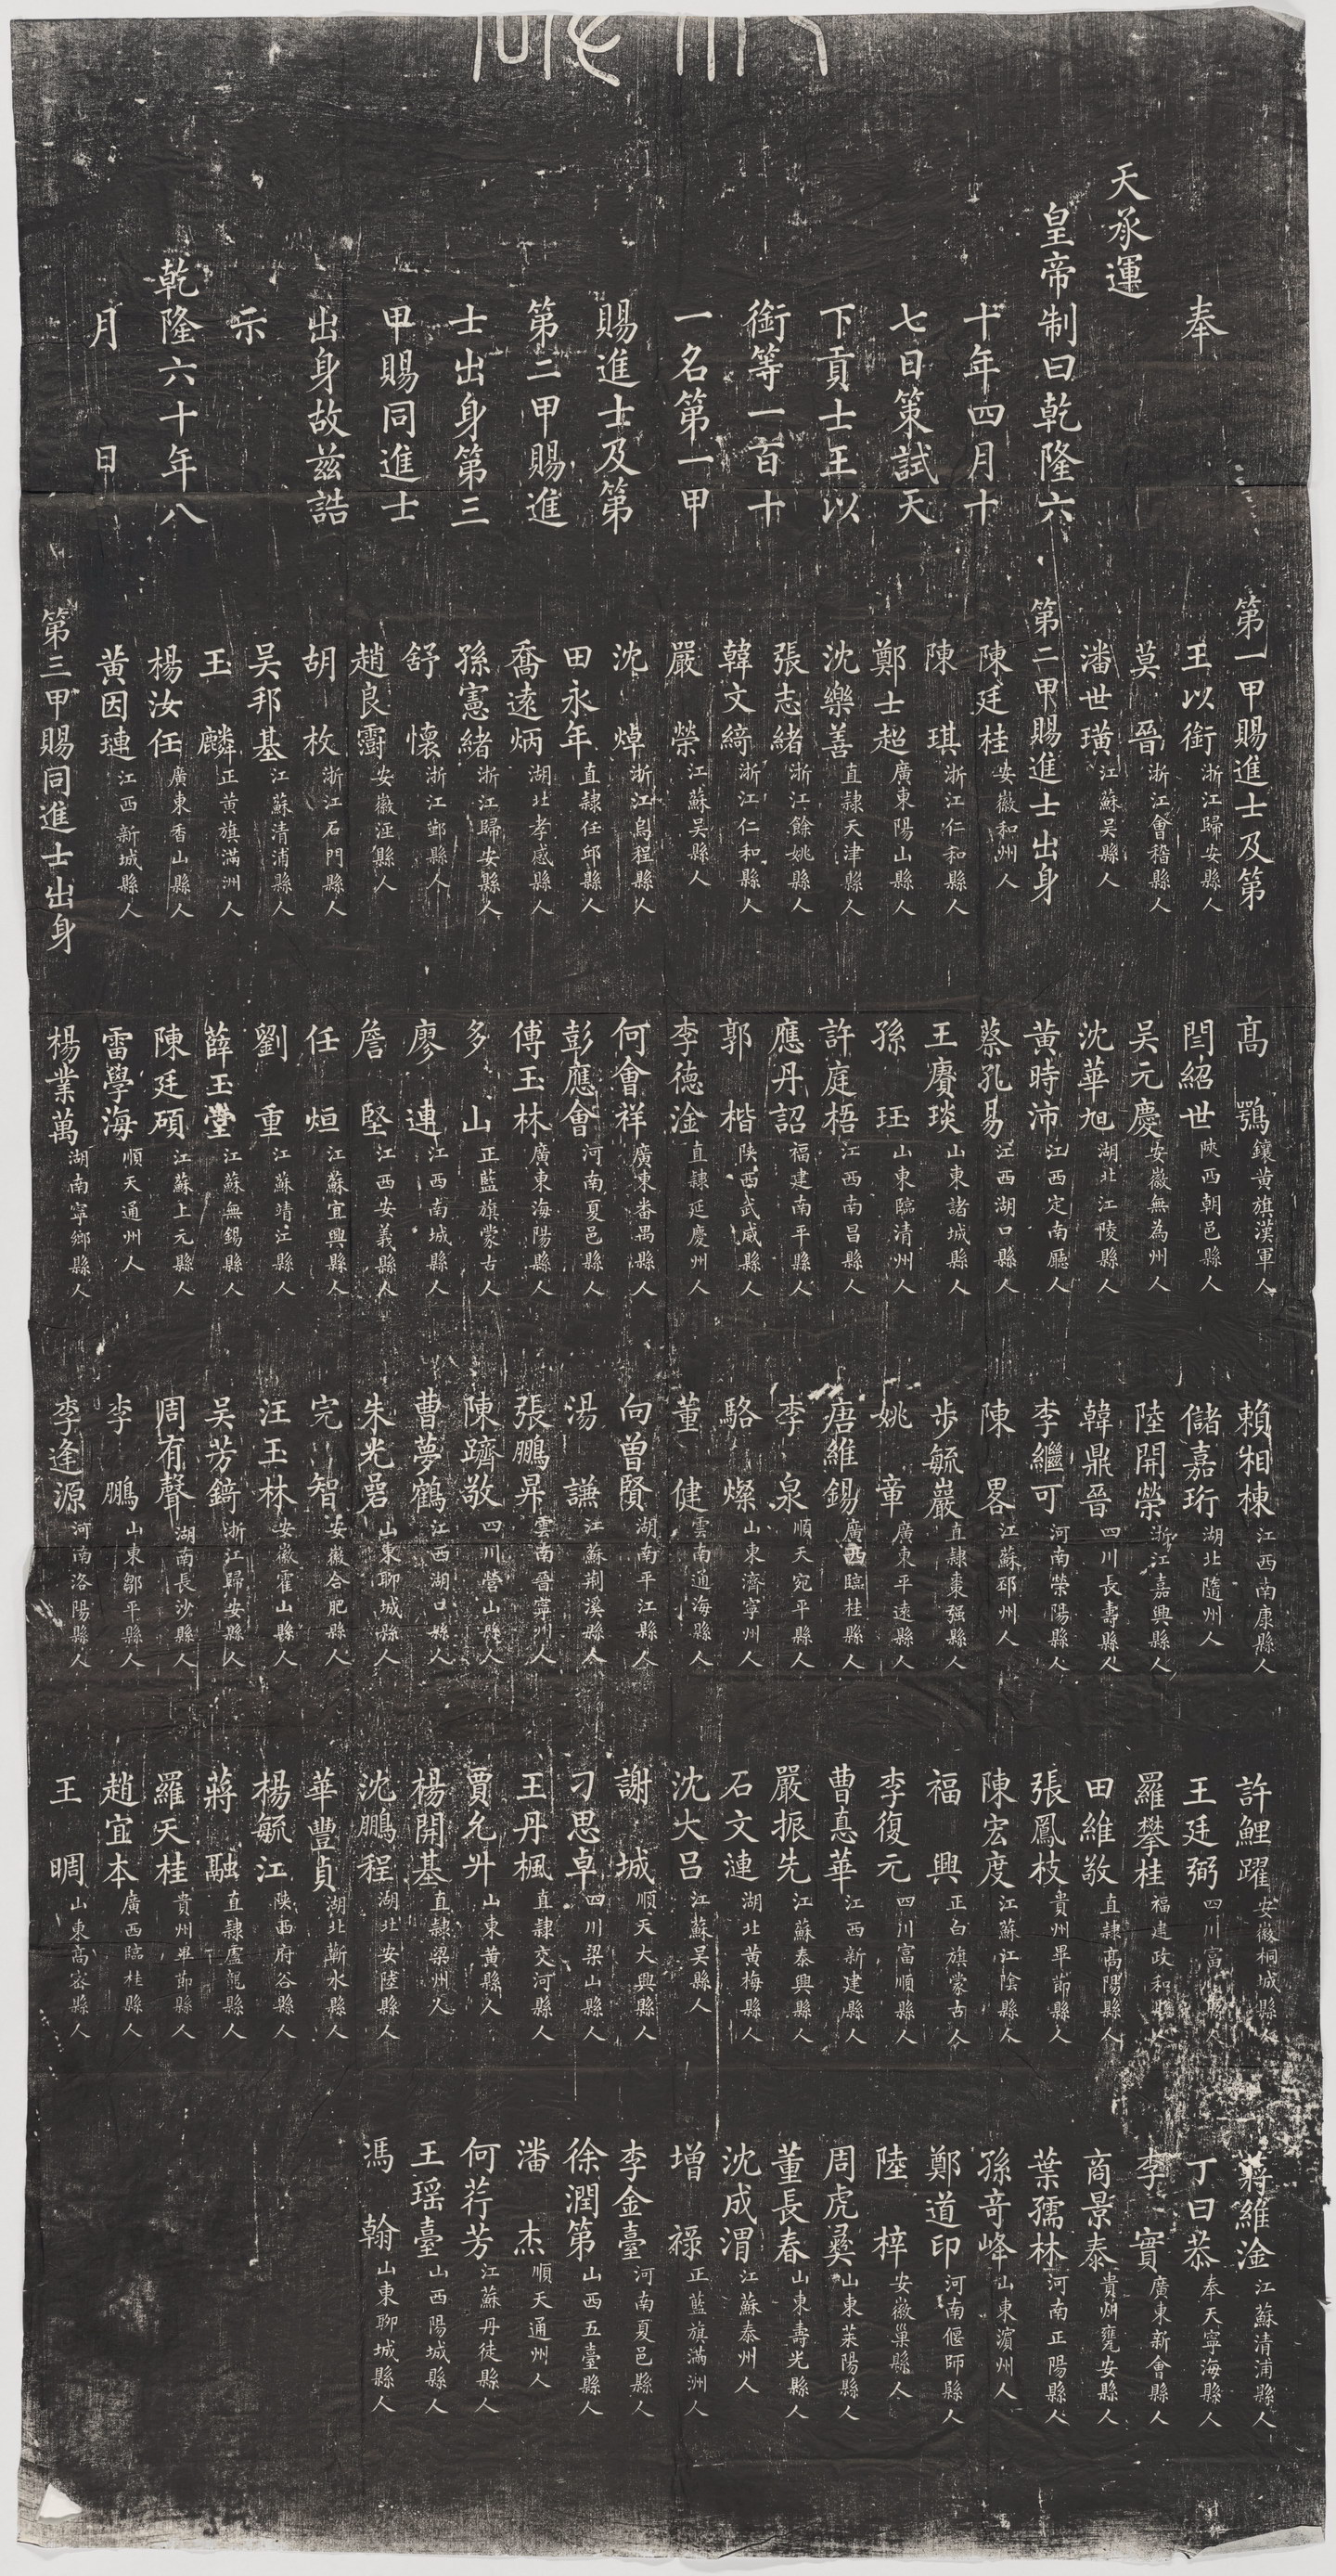 奉
天承運
皇帝制曰乾隆六
十年四月十
七日策試天
下貢士王以
銜等一百十
一名第一甲
賜進士及第
第二甲賜進
士出身第三
甲賜同進士
出身故茲誥
示
乾隆六十年八
月 日
第一甲賜進士及第
王以銜 浙江歸安縣人
莫晉 浙江會稽縣人
潘世璜 江蘇吳縣人
第二甲賜進士出身
陳廷桂 安徽和州人
陳琪 浙江仁和縣人
鄭士超 廣東陽山縣人
沈樂善 直隸天津縣人
張志緒 浙江餘姚縣人
韓文綺 浙江仁和縣人
嚴榮 江蘇吳縣人
沈焯 浙江烏程縣人
田永年 直隸任邱縣人
喬遠炳 湖北孝感縣人
孫憲緒 浙江歸安縣人
舒懷 浙江鄞縣人
趙良霨 安徽涇縣人
胡枚 浙江石門縣人
吳邦基 江蘇清浦縣人
玉麟 正黃旗滿洲人
楊汝任 廣東香山縣人
黃因璉 江西新城縣人
第三甲賜同進士出身
高鶚 鑲黃旗漢軍人
閆紹世 陝西朝邑縣人
吳元慶 安徽無為州人
沈華旭 湖北江陵縣人
黃時沛 江西定南廳人
蔡孔易 江西湖口縣人
王賡琰 山東諸城縣人
孫珏 山東臨清州人
許庭梧 江西南昌縣人
應丹詔 福建南平縣人
郭楷 陝西武威縣人
李德淦 直隸延慶州人
何會祥 廣東番禺縣人
彭應會 河南夏邑縣人
傅玉林 廣東海陽縣人
多山 正藍旗蒙古人
廖連 江西南城縣人
詹堅 江西安義縣人
任烜 江蘇宜興縣人
劉重 江蘇靖江縣人
薛玉堂 江蘇無錫縣人
陳廷碩 江蘇上元縣人
雷學海 順天通州人
楊業萬 湖南寧鄉縣人
賴相棟 江西南康縣人
儲嘉珩 湖北隨州人
陸開榮 浙江嘉興縣人
韓鼎晉 四川長壽縣人
李繼可 河南榮陽縣人
陳畧 江蘇邳州人
步毓巖 直隸棗强縣人
姚章 廣東平遠縣人
唐維錫 廣西臨桂縣人
李泉 順天宛平縣人
駱燦 山東濟寧州人
董健 雲南通海縣人
向曾賢 湖南平江縣人
湯謙 江蘇荆溪縣人
張鵬昇 雲南晉寧州人
陳躋敬 四川營山縣人
曹夢鶴 江西湖口縣人
朱光晷 山東聊城縣人
完智 安徽合肥縣人
汪玉林 安徽霍山縣人
吳芳錡 浙江歸安縣人
周有聲 湖南長沙縣人
李鵬 山東鄒平縣人
李逢源 河南洛陽縣人
許鯉躍 安徽桐城縣人
王廷弼 四川富 人
羅攀桂 福建政和縣人
田維敬 直隸高陽縣人
張鳳枝 貴州畢節縣人
陳宏度 江蘇江陰縣人
福興 正白旗蒙古人
李復元 四川富順縣人
曹憙華 江西新建縣人
嚴振先 江蘇泰興縣人
石文漣 湖北黃梅縣人
沈大呂 江蘇吳縣人
謝城 順天大興縣人
刁思卓 四川梁山縣人
王丹楓 直隸交河縣人
賈允升 山東黃縣人
楊開基 直隸灤州人
沈鵬程 湖北安陸縣人
華豐貞 湖北蘄水縣人
楊毓江 陝西府谷縣人
蔣融 直隸盧龍縣人
羅天桂 貴州畢節縣人
趙宜本 廣西臨桂縣人
王晭 山東高密縣人
蔣維淦 江蘇清浦縣人
丁日恭 奉天寧海縣人
李實 廣東新會縣人
商景泰 貴州甕安縣人
葉孺林 河南正陽縣人
孫竒峰 山東濱州人
鄭道印 河南偃師縣人
陸梓 安徽巢縣人
周虎彝 山東萊陽縣人
董長春 山東壽光縣人
沈成渭 江蘇泰州人
增祿 正藍旗滿洲人
李金臺 河南夏邑縣人
徐潤第 山西五臺縣人
潘杰 順天通州人
何荇芳 江蘇丹徒縣人
王瑶臺 山西陽城縣人
馮翰 山東聊城縣人